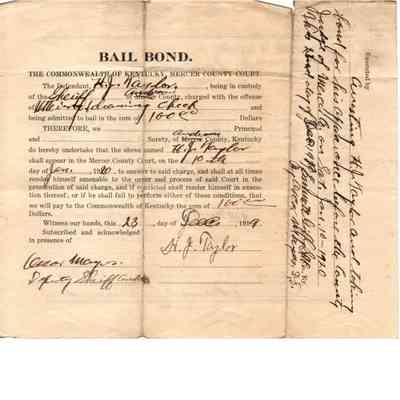 BAIL BOND.
THE COMMONWEALTH OF KENTUCKY, MERCER COUNTY COURT
The Defendant, H. J. Taylor, being in custody
of the Sheriff Anderson of Mercer County, charged with the offense
of drawing Check and
being admitted to bail in the sum of 100 00 Dollars
THEREFORE, we Principal
and Surety, of Anderson Mercer County, Kentucky
do hereby undertake that the above named H. J. Taylor
shall appear in the Mercer County Court, on the 10th
day of Jan. 1920, to answer to said charge, and shall at all times
render himself amenable to the order and process of said Court in the
prosecution of said charge, and if convicted shall render himself in execu-
tion thereof; or if he shall fail to perform either of these conditions, that
we will pay to the Commonwealth of Kentucky the sum of 100 00
Dollars.
Witness our hands, this 23 day of Dec 1919.
Subscribed and acknowledged
in presence of
H. J. Taylor
Oscar
Deputy Sheriff
Executed by
Arresting H. J. Taylor and taking
bond for his appearance before the County
Judge of Mercer Co on Sat. Jan. 10-1920
This day of Dec 1919